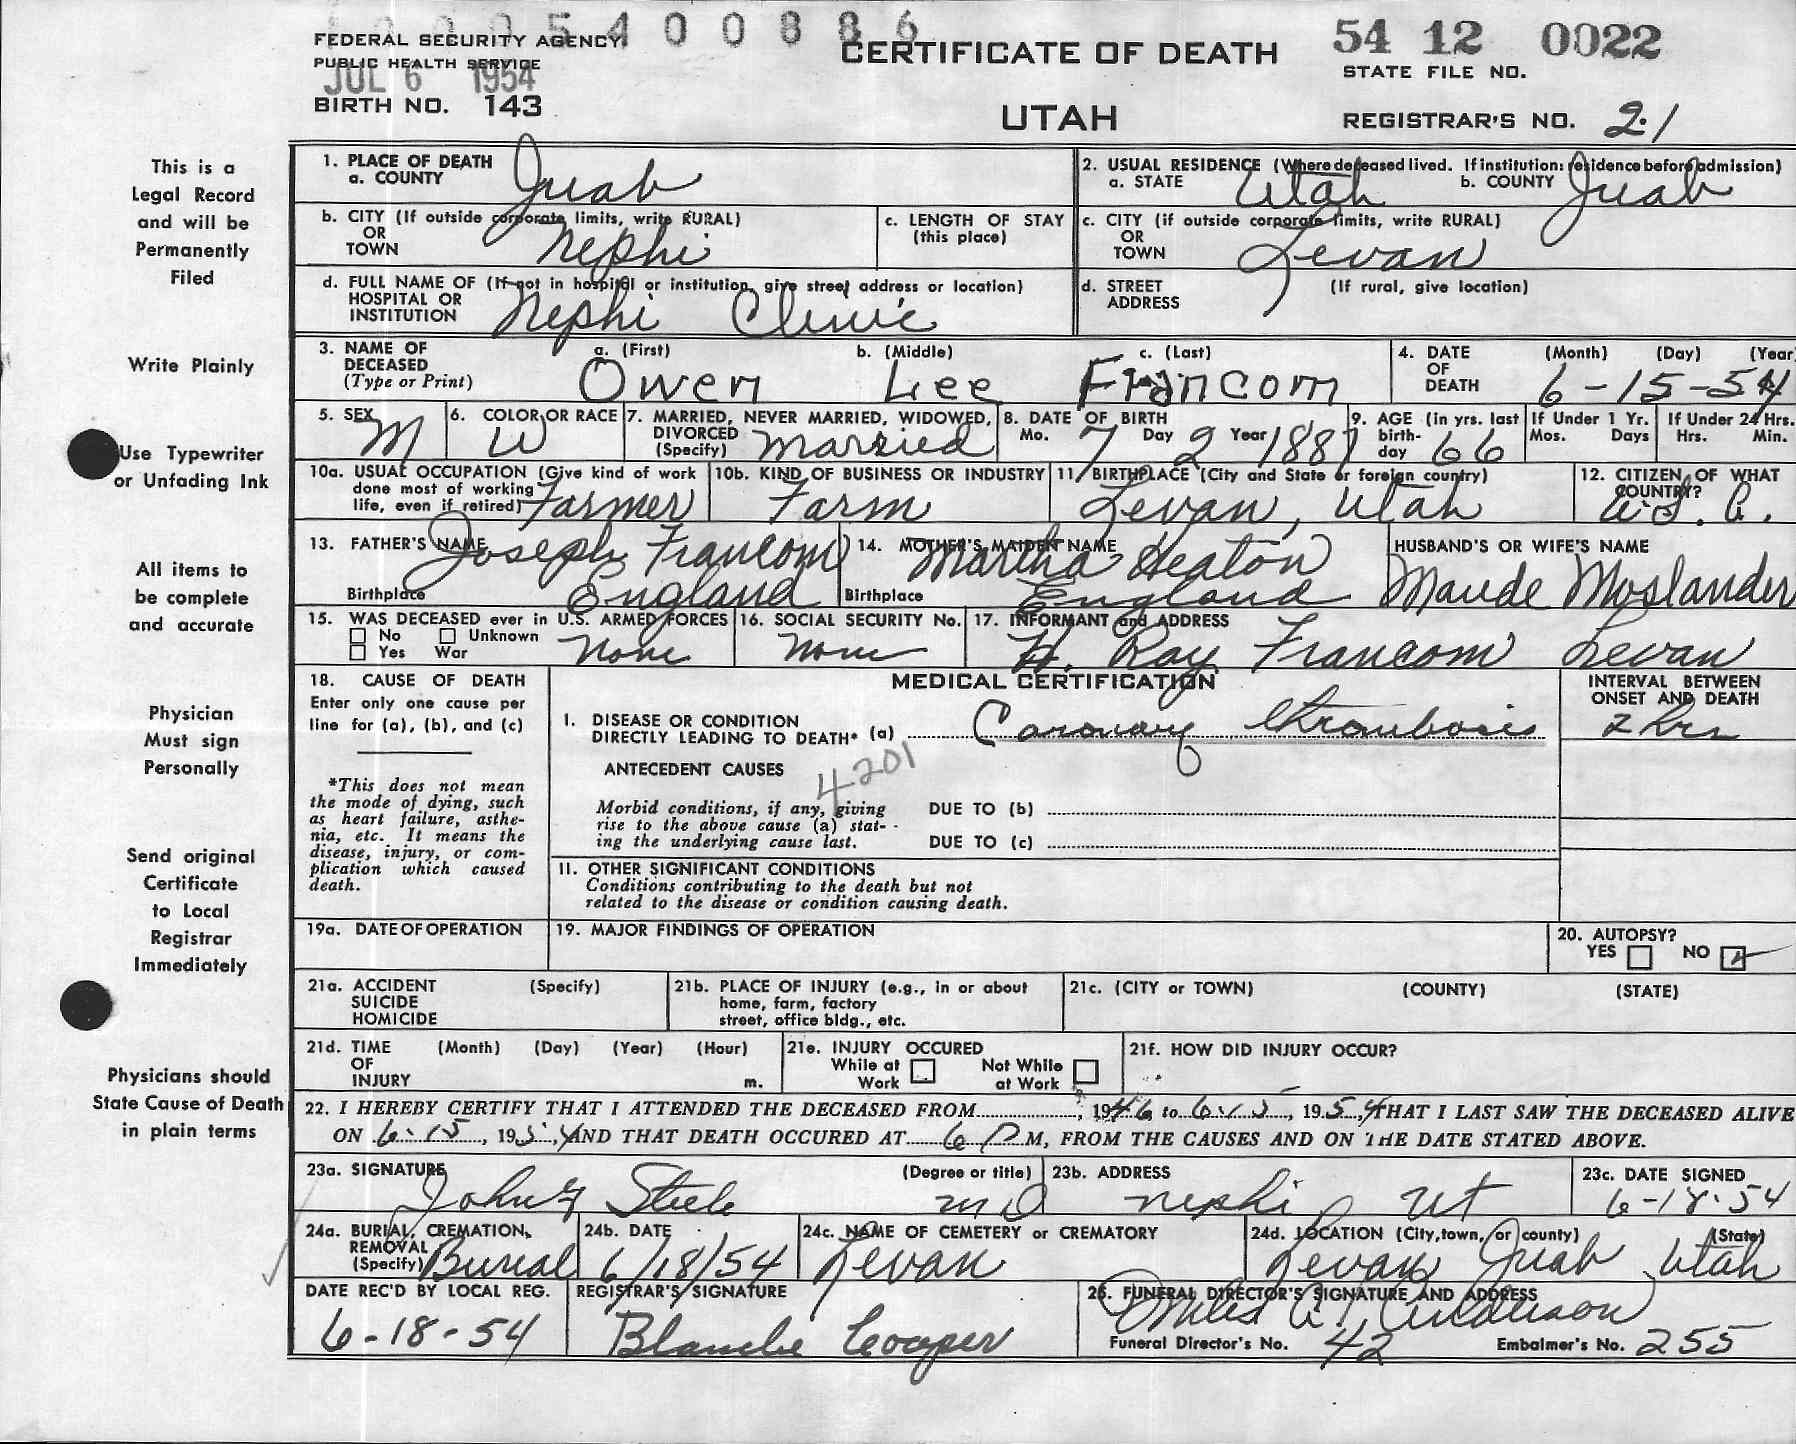 1 9 0 5 4 0 0 8 8 6
FEDERAL SECURITY AGENCY
PUBLIC HEALTH SERVICE
JUL 6 1954
BIRTH NO. 143
CERTIFICATE OF DEATH
UTAH
54 12 0022
STATE FILE NO.
REGISTRAR'S NO. 21
This is a
Legal Record
and will be
Permanently
Filed
Write Plainly
Use Typewriter
or Unfading Ink
All items to
be complete
and accurate
Physician
Must sign
Personally
Send original
Certificate
to Local
Registrar
Immediately
Physicians should
State Cause of Death
in plain terms
1. PLACE OF DEATH
a. COUNTY Juab
2. USUAL RESIDENCE (Where deceased lived. If institution: residence before admission)
a. STATE Utah b. COUNTY Juab
b. CITY (If outside corporate limits, write RURAL)
OR
TOWN Nephi
c. LENGTH OF STAY
(this place)
c. CITY (if outside corporate limits, write RURAL)
OR
TOWN Levan
d. FULL NAME OF (If not in hospital or institution, give street address or location)
HOSPITAL OR
INSTITUTION Nephi Clinic
d. STREET (If rural, give location)
ADDRESS
3. NAME OF a. (First) b. (Middle) c. (Last)
DECEASED
(Type or Print) Owen Lee Francom
4. DATE (Month) (Day) (Year)
OF
DEATH 6-15-54
5. SEX M
6. COLOR OR RACE W
7. MARRIED, NEVER MARRIED, WIDOWED,
DIVORCED
(Specify) Married
8. DATE OF BIRTH
Mo. 7 Day 2 Year 1887
9. AGE (in yrs. last
birth-
day 66
If Under 1 Yr.
Mos. Days
If Under 24 Hrs.
Hrs. Min.
10a. USUAL OCCUPATION (Give kind of work
done most of working
life, even if retired) Farmer
10b. KIND OF BUSINESS OR INDUSTRY
Farm
11. BIRTHPLACE (City and State or foreign country)
Levan, Utah
12. CITIZEN OF WHAT
COUNTRY?
U.S.A.
13. FATHER'S NAME Joseph Francom
Birthplace England
14. MOTHER'S MAIDEN NAME
Martha Heaton
Birthplace England
HUSBAND'S OR WIFE'S NAME
Maude Moslander
15. WAS DECEASED ever in U.S. ARMED FORCES
No Unknown
Yes War None
16. SOCIAL SECURITY No.
None
17. INFORMANT and ADDRESS
H. Ray Francom Levan
18. CAUSE OF DEATH
Enter only one cause per
line for (a), (b), and (c)
*This does not mean
the mode of dying, such
as heart failure, asthe-
nia, etc. It means the
disease, injury, or com-
plication which caused
death.
MEDICAL CERTIFICATION
INTERVAL BETWEEN
ONSET AND DEATH
I. DISEASE OR CONDITION
DIRECTLY LEADING TO DEATH* (a) Coronary thrombosis 2 hrs
ANTECEDENT CAUSES 4201
Morbid conditions, if any, giving DUE TO (b)
rise to the above cause (a) stat-
ing the underlying cause last. DUE TO (c)
11. OTHER SIGNIFICANT CONDITIONS
Conditions contributing to the death but not
related to the disease or condition causing death.
19a. DATE OF OPERATION
19. MAJOR FINDINGS OF OPERATION
20. AUTOPSY?
YES NO
21a. ACCIDENT (Specify)
SUICIDE
HOMICIDE
21b. PLACE OF INJURY (e.g., in or about
home, farm, factory
street, office bldg., etc.
21c. (CITY or TOWN) (COUNTY) (STATE)
21d. TIME (Month) (Day) (Year) (Hour)
OF
INJURY m.
21e. INJURY OCCURED
While at Not While
Work at Work
21f. HOW DID INJURY OCCUR?
22. I HEREBY CERTIFY THAT I ATTENDED THE DECEASED FROM , 1946 to 6-15, 1954, THAT I LAST SAW THE DECEASED ALIVE
ON 6-15, 1954, AND THAT DEATH OCCURED AT 6 P M, FROM THE CAUSES AND ON THE DATE STATED ABOVE.
23a. SIGNATURE (Degree or title)
Steele MD
23b. ADDRESS
Nephi Ut
23c. DATE SIGNED
6-18-54
24a. BURIAL, CREMATION,
REMOVAL
(Specify) Burial
24b. DATE
6/18/54
24c. NAME OF CEMETERY or CREMATORY
Levan
24d. LOCATION (City, town, or county) (State)
Levan Juab Utah
DATE REC'D BY LOCAL REG.
6-18-54
REGISTRAR'S SIGNATURE
Blanche Cooper
25. FUNERAL DIRECTOR'S SIGNATURE AND ADDRESS
Anderson
Funeral Director's No. 42 Embalmer's No. 255